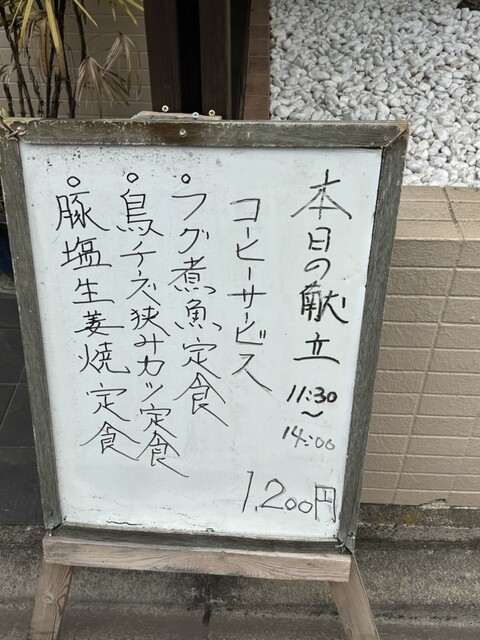 本日の献立
11:30
〜
14:00
コーヒーサービス
1,200円
○フグ煮魚定食
○鳥チーズ狭みカツ定食
○豚塩生姜焼定食